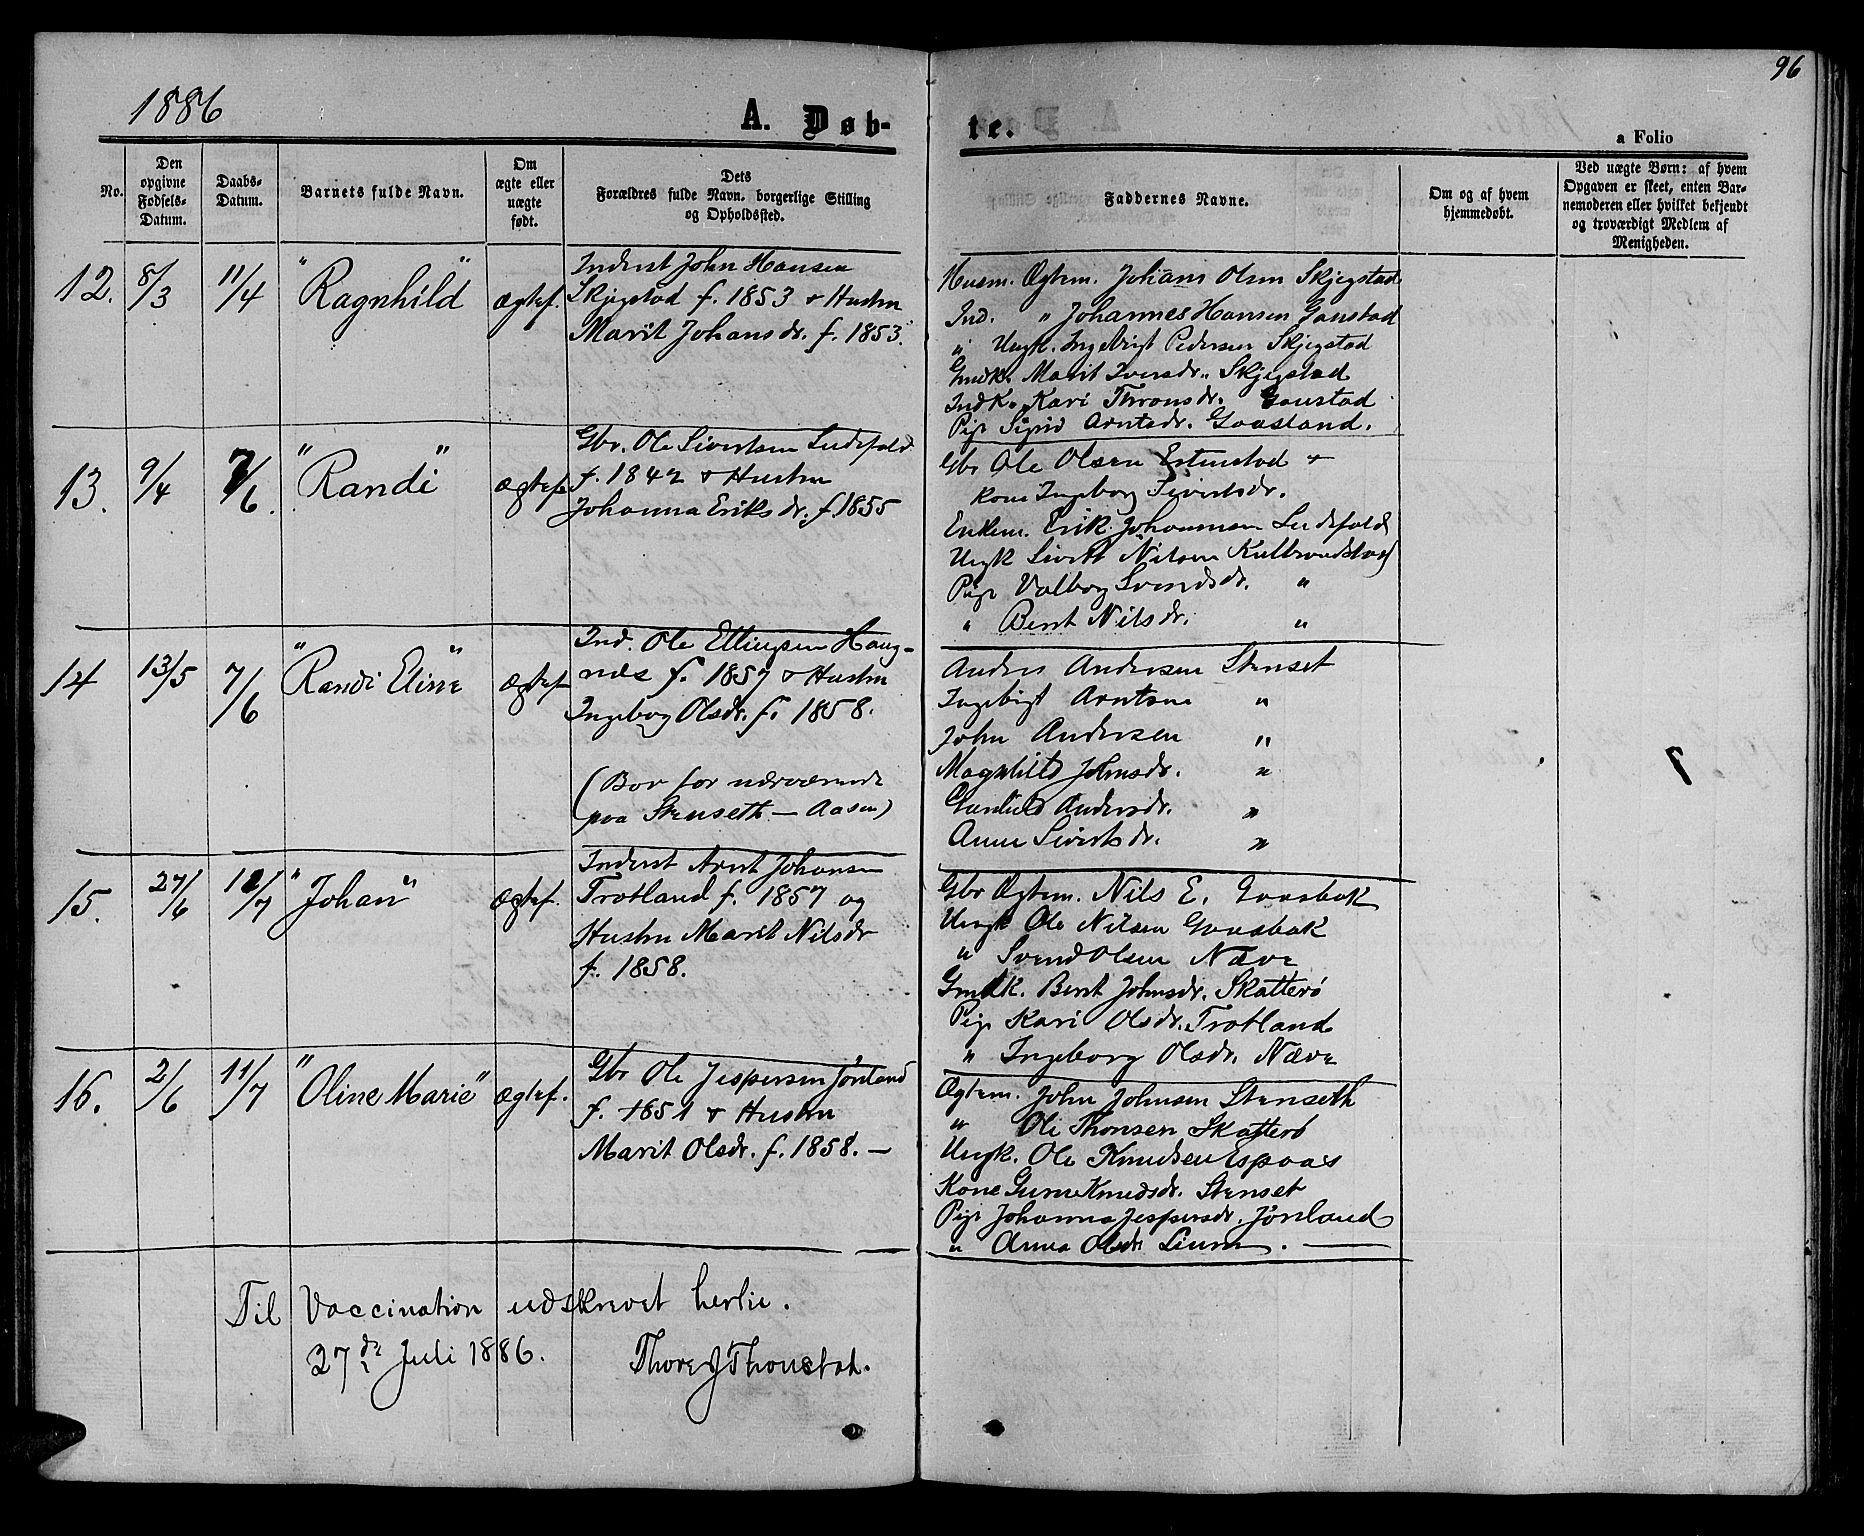 1886
A. Døb-
No.
Den opgivne Fødsels-Datum.
Daabs-Datum.
Barnets fulde Navn.
Om ægte eller uægte født.
Dets Forældres fulde Navn, borgerlige Stilling og Opholdssted.
12. 8/3 11/4 "Ragnhild" ægtef.
Inderst John Hansen
Skjegstad f. 1853 & Hustru
Marit Johansdr. f. 1853.
13. 9/4 7/6. "Randi" ægtef.
Gbr. Ole Sivertsen
f. 1842 & Hustru
Johanna Eriksdr. f. 1855
14 13/5 7/6 "Randi Eline" ægtef
Ind. Ole Ellingsen Haug-
næs f. 1857 & Hustru
Ingebog Olsdr. f. 1858.
(Bor for nærværende
paa Stenseth – Aasen)
15. 27/6 11/7 "Johan" ægtef.
Inderst Arnt Johansen
Trotland f. 1857 og
Hustru Marit Nilsdr
f. 1858.
16. 2/6 11/7 "Oline Marie" ægtef.
Gbr Ole Jespersen Jønland
f. 1851 & Hustru
Marit Olsdr. f. 1858. –
Til Vaccination udskrevet herlie.
27de Juli 1886. Thore J Thonstad.
96
te.
a Folio
Faddernes Navne.
Om og af hvem hjemmedøbt.
Ved uægte Børn: af hvem
Opgaven er skeet, enten Bar-
nemoderen eller hvilket bekjendt
og troværdigt Medlem af
Menigheden.
Husm. Ægtem. Johans Olsen Skjegstad
Ind. " Johannes Hansen Gaustad
" Ungk. Ingebrigt Pedersen Skjegstad
Gmdk. Marit Iversdr. Skjegstad
Indk. Kari Thronsdr. Gaustad
Pige Sigrid Arntsdr. Gaasland.
Gbr Ole Olsen Estenstad &
kone Ingeborg Sivertsdr.
Enkem. Erik Johannesen
Ungk Sivert Nilsen Kulbrandstad
Pige Valborg Svendsdr. "
" Berit Nilsdr. "
Anders Andersen Stenset
Ingebrigt Arntsen "
John Andersen "
Magnhild Johnsdr. "
Gunhild Andersdr. "
Anne Sivertsdr. "
Gbr Ægtem. Nils E. Gaasbak
Ungk Ole Nilsen Gaasbak
" Svend Olsen Næve
Gmdk. Berit Johnsdr. Skatterø
Pige Kari Olsdr. Trotland
" Ingeborg Olsdr. Næve
Ægtem. John Johnsen Stenseth
" Ole Thonsen Skatterø
Ungk. Ole Knudsen Espaas
Kone Guru Knudsdr. Stenset
Pige Johanna Jespersdr. Jønland
" Anna Olsdr. Lium. –